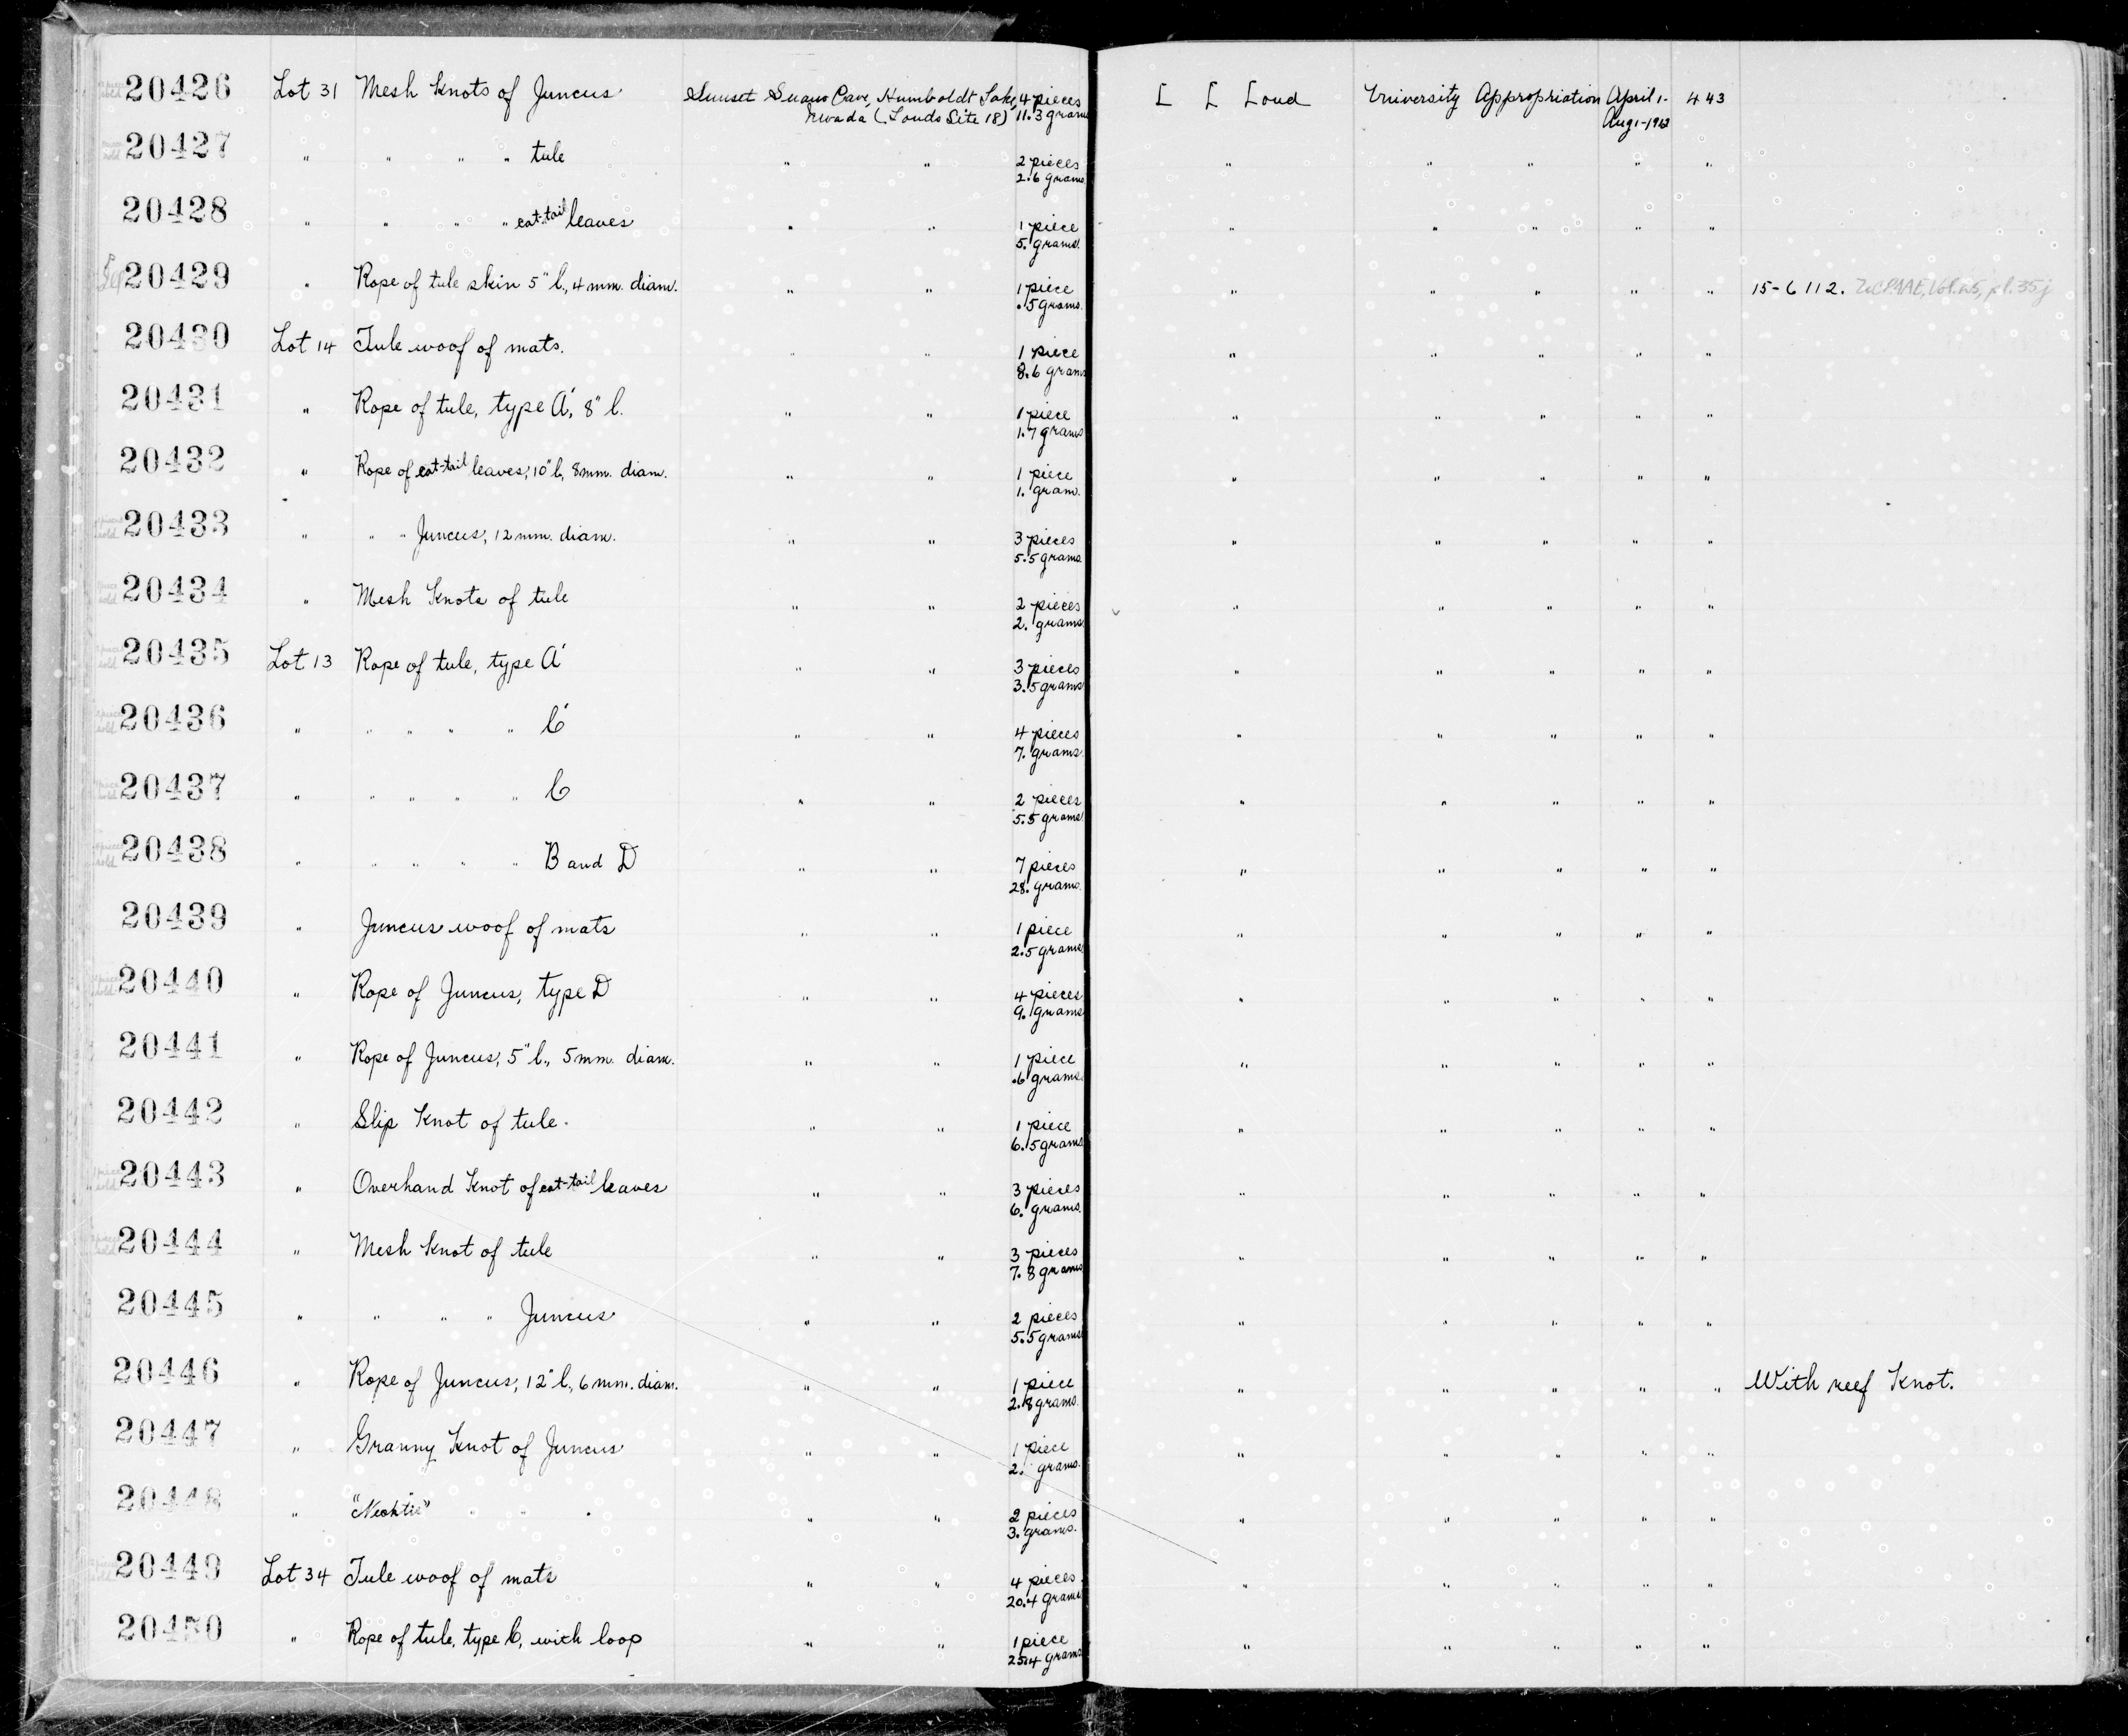 20426 Lot 31 Mesh Knots of Juncus Sunset Guano Cave, Humboldt Lake, 4 pieces L L Loud University Appropriation April 1- 443
Nevada (Louds Site 18) 11.3 grams Aug 1-1912
20427 " " " " tule " " 2 pieces " " " " "
2.6 grams
20428 " " " " cat-tail leaves " " 1 piece " " " " "
5. grams
20429 " Rope of tule skin 5" l., 4 mm. diam. " " 1 piece " " " " " 15-6112. UCPAAE, Vol. 25, pl. 35j
.5 grams.
20430 Lot 14 Tule woof of mats. " " 1 piece " " " " "
8.6 grams
20431 " Rope of tule, type A', 8" l. " " 1 piece " " " " "
1.7 grams
20432 " Rope of cat-tail leaves, 10" l, 8mm. diam. " " 1 piece " " " " "
1. gram.
20433 " " " Juncus, 12 mm. diam. " " 3 pieces " " " " "
5.5 grams
20434 " Mesh Knots of tule " " 2 pieces " " " " "
2. grams
20435 Lot 13 Rope of tule, type A' " " 3 pieces " " " " "
3.5 grams
20436 " " " " " C' " " 4 pieces " " " " "
7. grams.
20437 " " " " " C " " 2 pieces " " " " "
5.5 grams
20438 " " " " " B and D " " 7 pieces " " " " "
28. grams.
20439 " Juncus woof of mats " " 1 piece " " " " "
2.5 grams
20440 " Rope of Juncus, type D " " 4 pieces " " " " "
9. grams
20441 " Rope of Juncus, 5" l., 5mm. diam. " " 1 piece " " " " "
.6 grams.
20442 " Slip Knot of tule. " " 1 piece " " " " "
6.5 grams
20443 " Overhand Knot of cat-tail leaves " " 3 pieces " " " " "
6. grams.
20444 " Mesh Knot of tule " " 3 pieces " " " " "
7.8 grams
20445 " " " " Juncus " " 2 pieces " " " " "
5.5 grams
20446 " Rope of Juncus, 12" l., 6 mm. diam. " " 1 piece " " " " " With reef Knot.
2.8 grams.
20447 " Granny Knot of Juncus " " 1 piece " " " " "
2. grams.
20448 " "Necktie" " " " " " 2 pieces " " " " "
3. grams.
20449 Lot 34 Tule woof of mats " " 4 pieces " " " " "
20.4 grams
20450 " Rope of tule, type C, with loop " " 1 piece " " " " "
25.4 grams